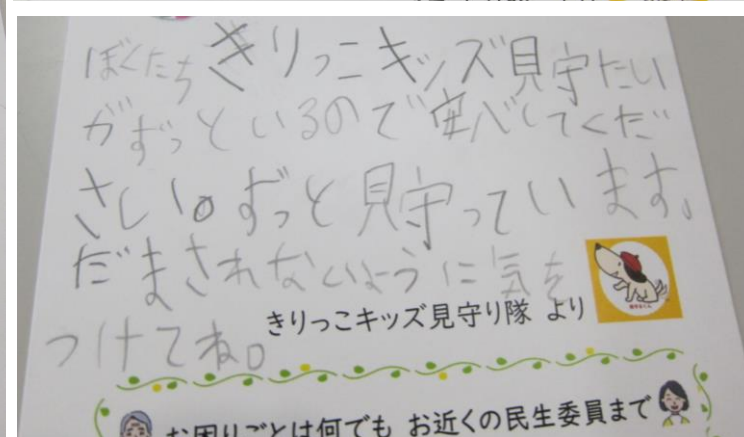 ぼくたちきりっこキッズ見守たい
がずっといるので安心してくだ
さい。ずっと見守っています。
だまされないように気を
つけてね。
きりっこキッズ見守り隊 より
お困りごとは何でも お近くの民生委員まで